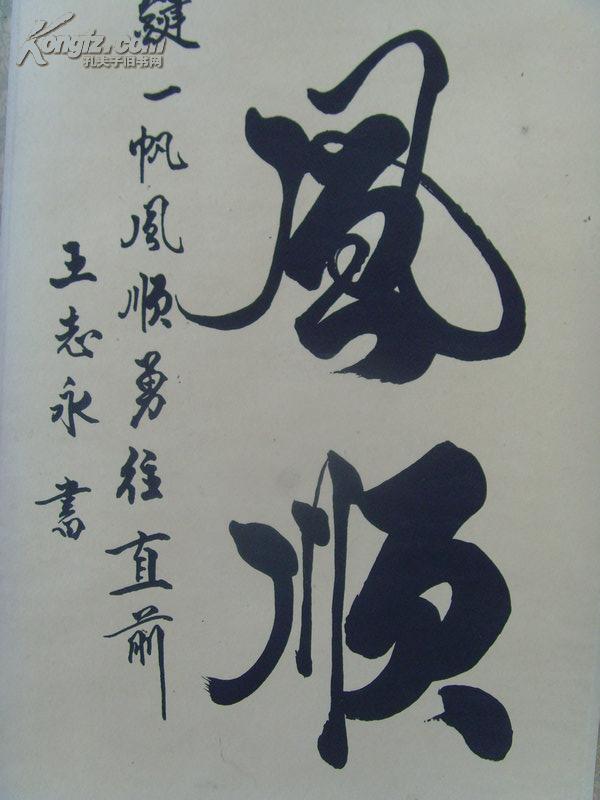 風順
一帆風順勇往直前
王志永書
Kongfz.com
孔夫子旧书网